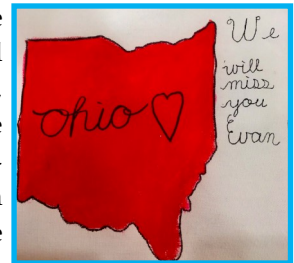 ohio
We
will
miss
you
Evan